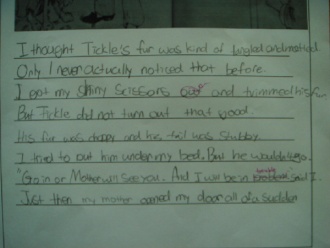 I thought Tickle's fur was kind of tugled and matted
Only I never actually noticed that before.
I got my shiny scissors out and trimmed his fur.
But Tickle did not turn out that good.
His fur was choppy and his tail was stubby.
I tried to put him under my bed. But he wouldn't go.
"Go in or Mother will see you. And I will be in said I.
Just then my mother opened my door all of a sudden